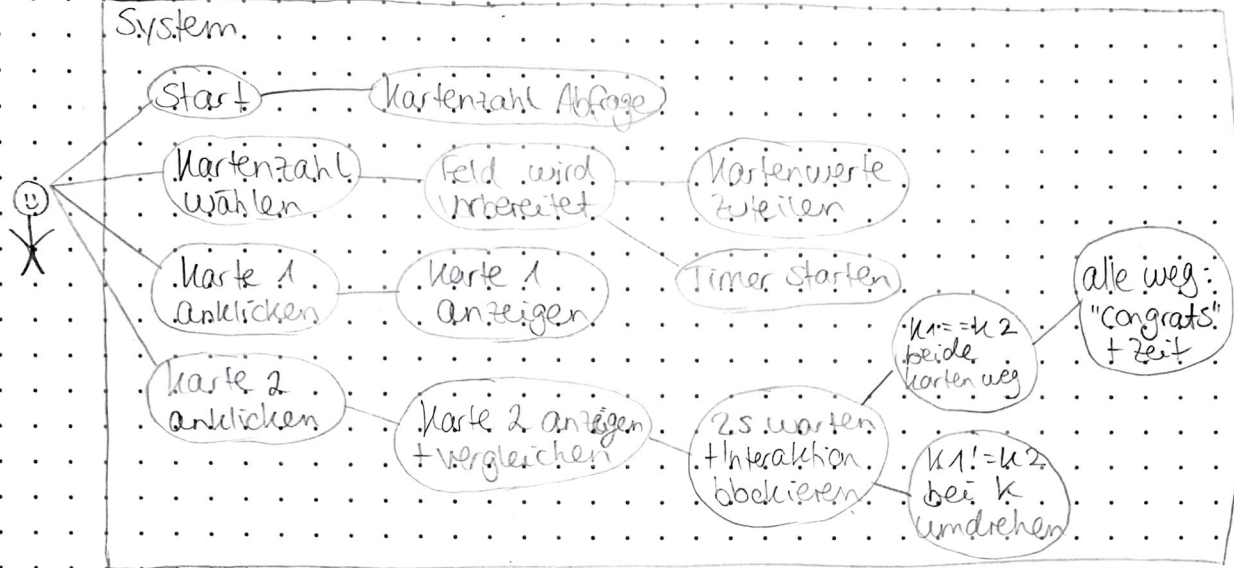 System
Start
Kartenzahl Abfrage
Kartenzahl
wählen
Feld wird
vorbereitet
Kartenwerte
zuteilen
Timer starten
Karte 1
anklicken
Karte 1
anzeigen
Karte 2
anklicken
Karte 2 anzeigen
+ vergleichen
2s warten
+ Interaktion
blockieren
K1==K2
beide
Karten weg
alle weg:
"congrats"
+ Zeit
K1!=K2
bei K
umdrehen